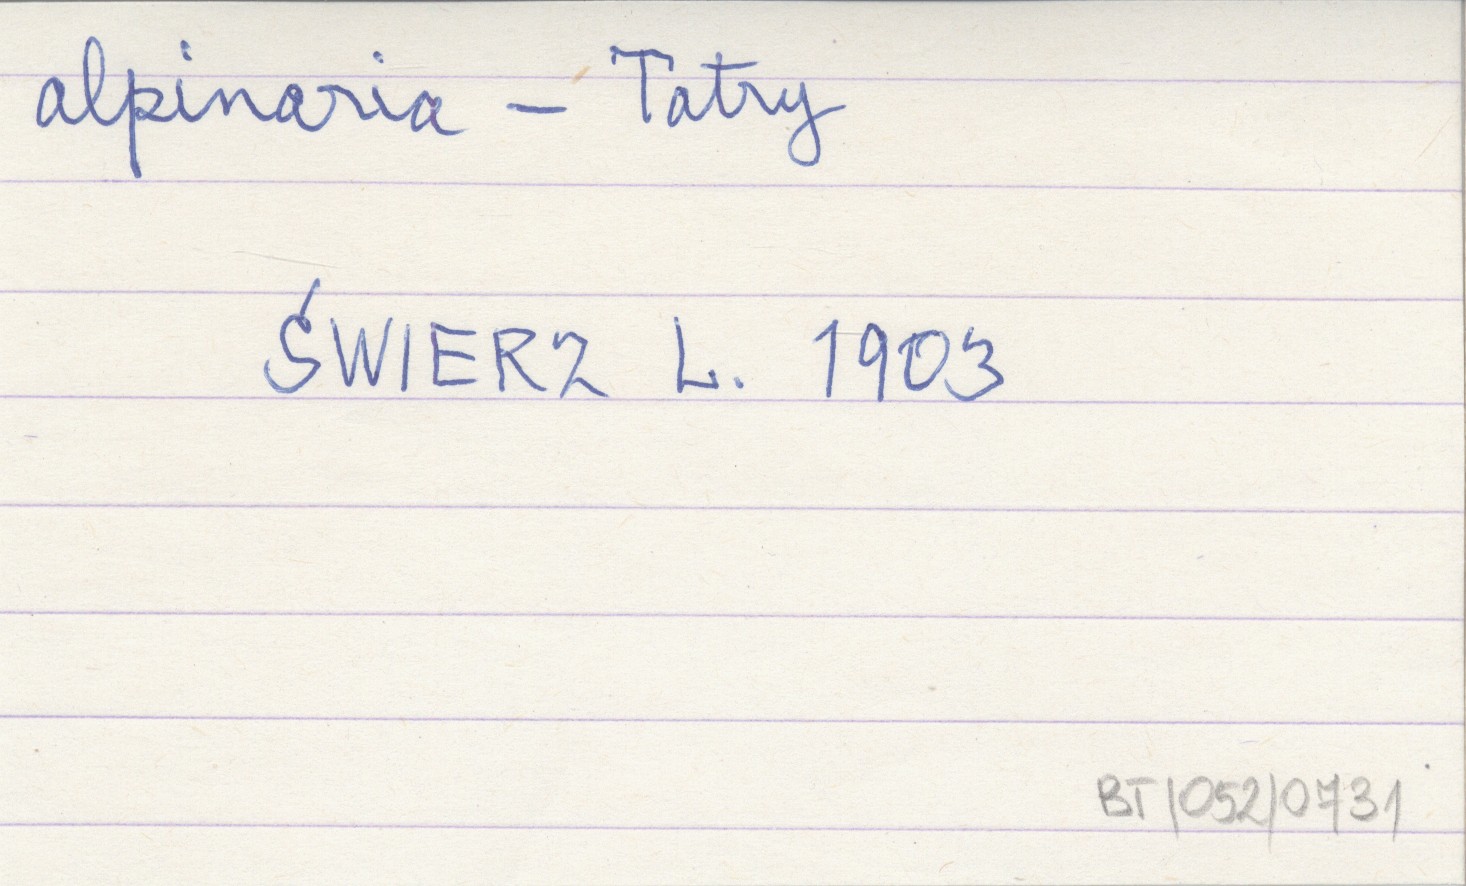 alpinaria – Tatry
ŚWIERZ L. 1903
BT/052/0731